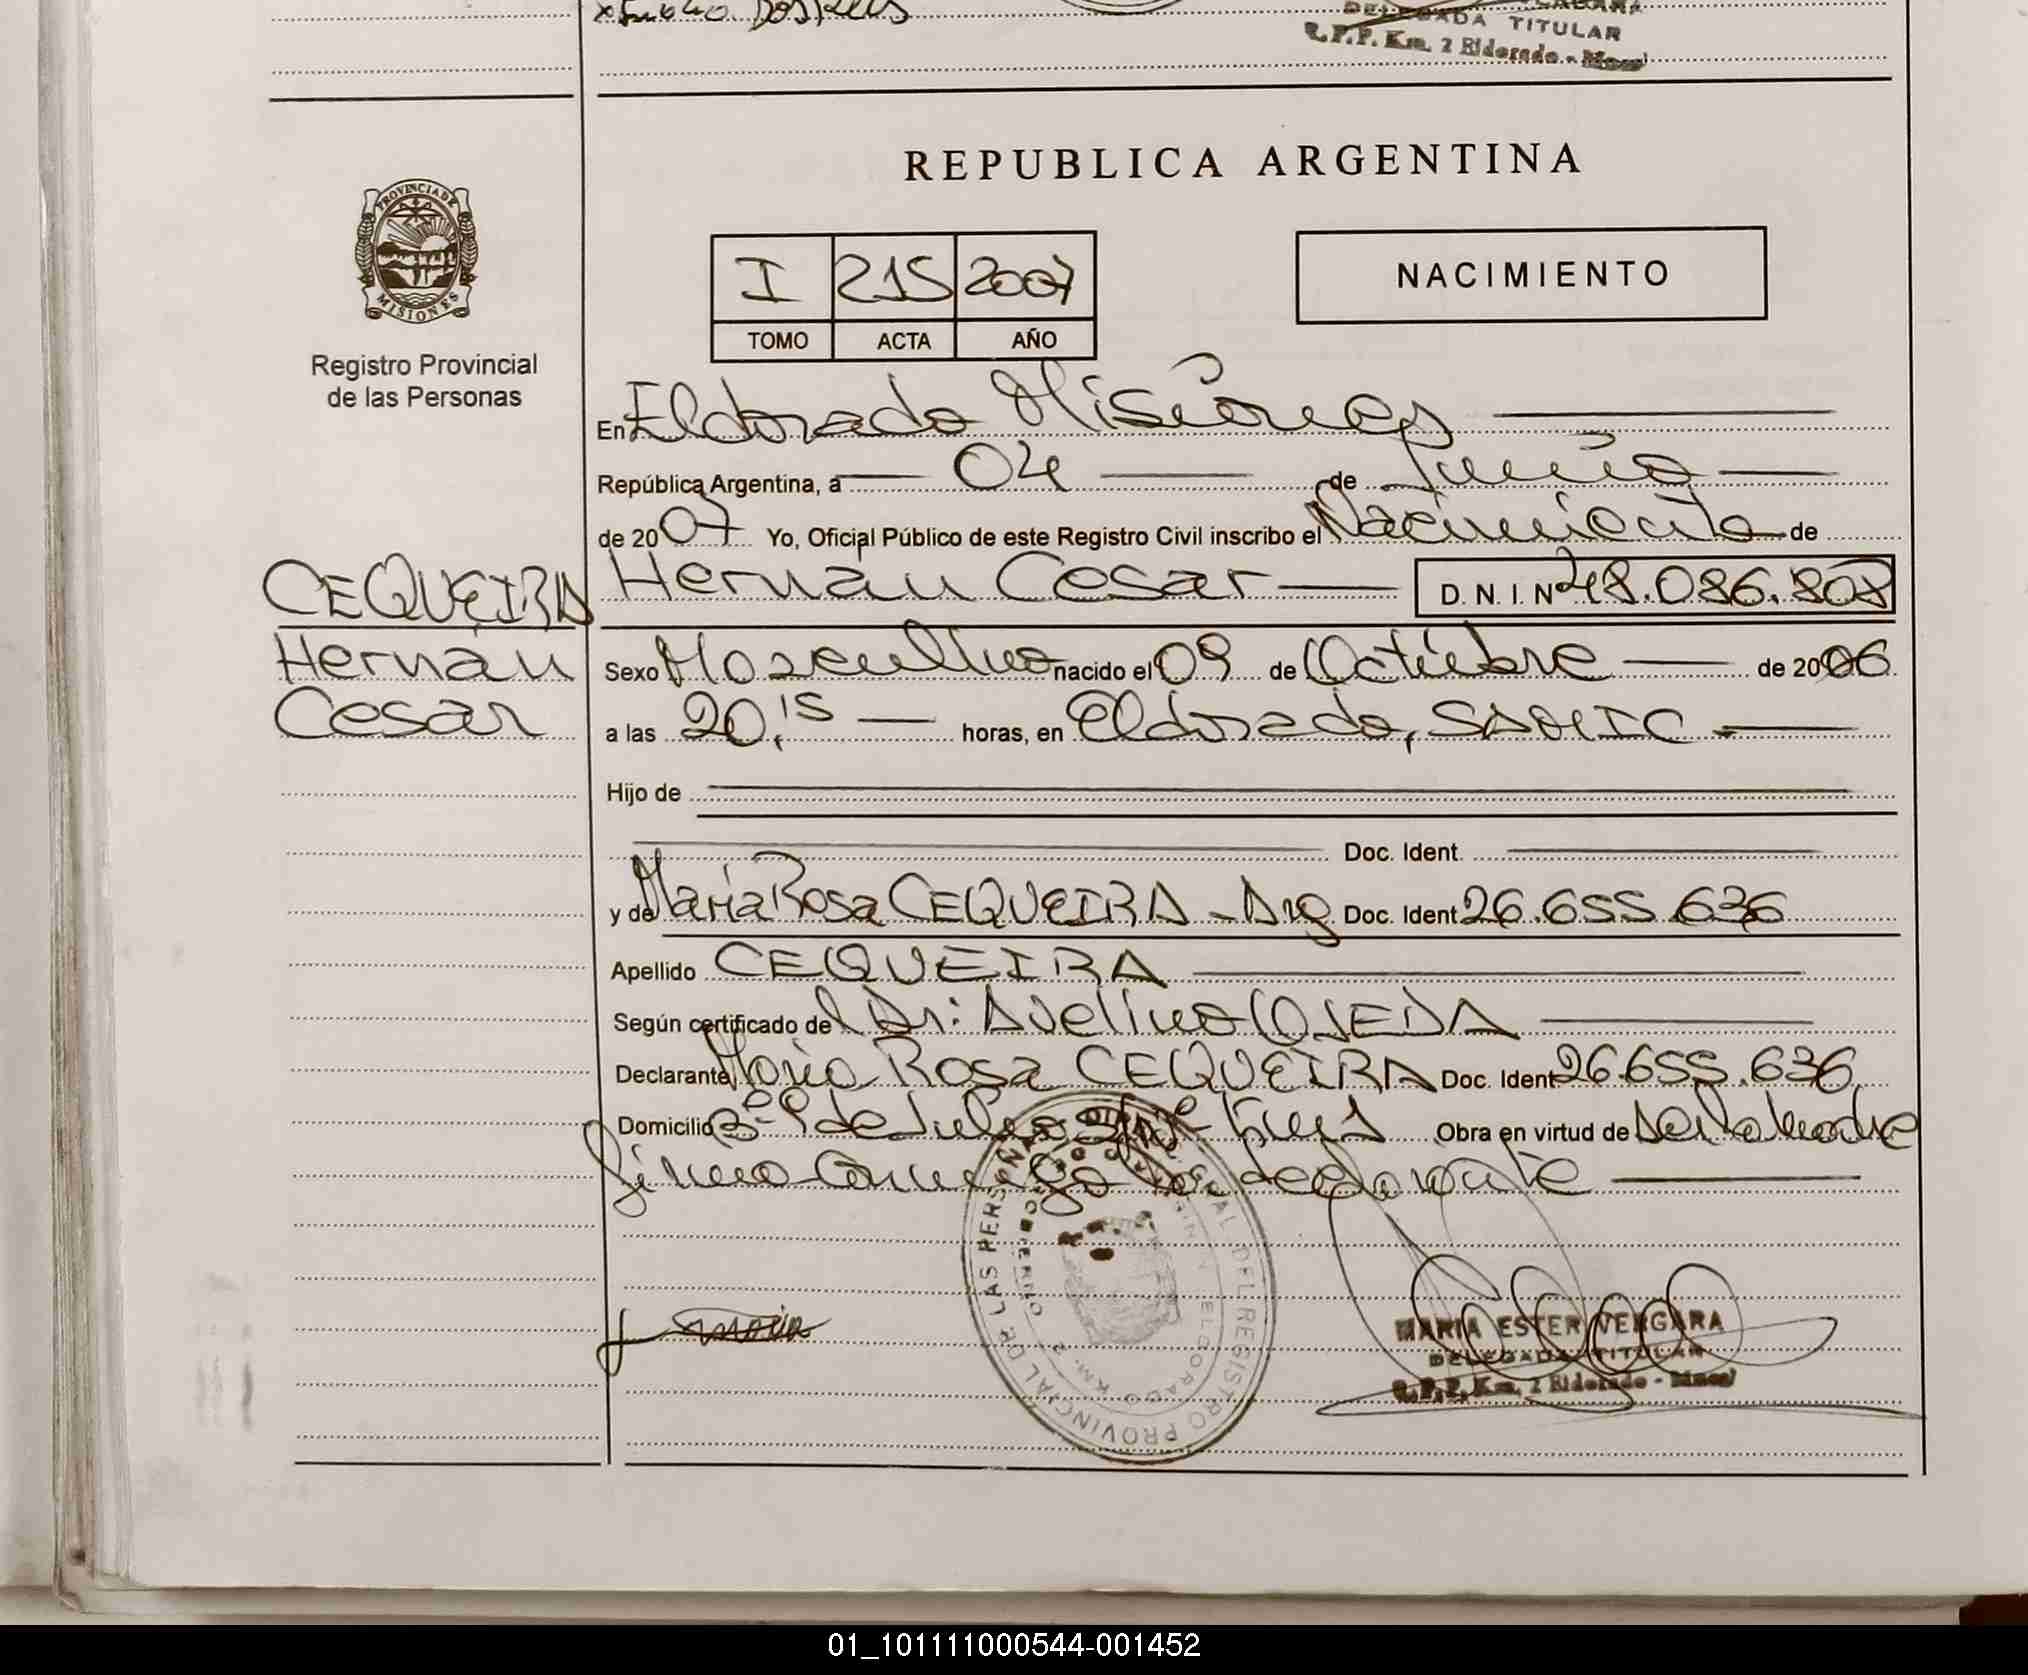 DELEGADA TITULAR
R.P.P. Km. 2 Eldorado - Mnes
REPUBLICA ARGENTINA
PROVINCIA DE MISIONES
I 215 2007
TOMO ACTA AÑO
NACIMIENTO
Registro Provincial
de las Personas
En Eldorado Misiones
República Argentina, a 04 de Junio
de 2007 Yo, Oficial Público de este Registro Civil inscribo el Nacimiento de
CEQUEIRA Hernán Cesar D. N. I. Nº 48.086.808
Hernán Sexo Masculino nacido el 09 de Octubre de 2006
Cesar a las 20,15 horas, en Eldorado, SAMIC
Hijo de
Doc. Ident.
y de María Rosa CEQUEIRA - Arg Doc. Ident 26.655.636
Apellido CEQUEIRA
Según certificado de Dr: Avelino OJEDA
Declarante Maria Rosa CEQUEIRA Doc. Ident 26.655.636
Domicilio Bº 9 de Julio Obra en virtud de ser la madre
firma conmigo la declarante
REGISTRO PROVINCIAL DE LAS PERSONAS
ELDORADO KM. 2
MARIA ESTER VERGARA
DELEGADA TITULAR
R.P.P. Km. 2 Eldorado - Mnes
01_101111000544-001452